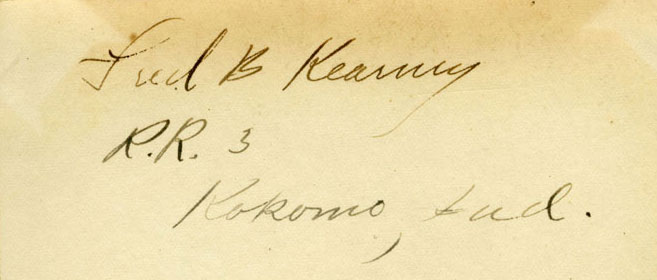 Fred B Kearney
R.R. 3
Kokomo, Ind.